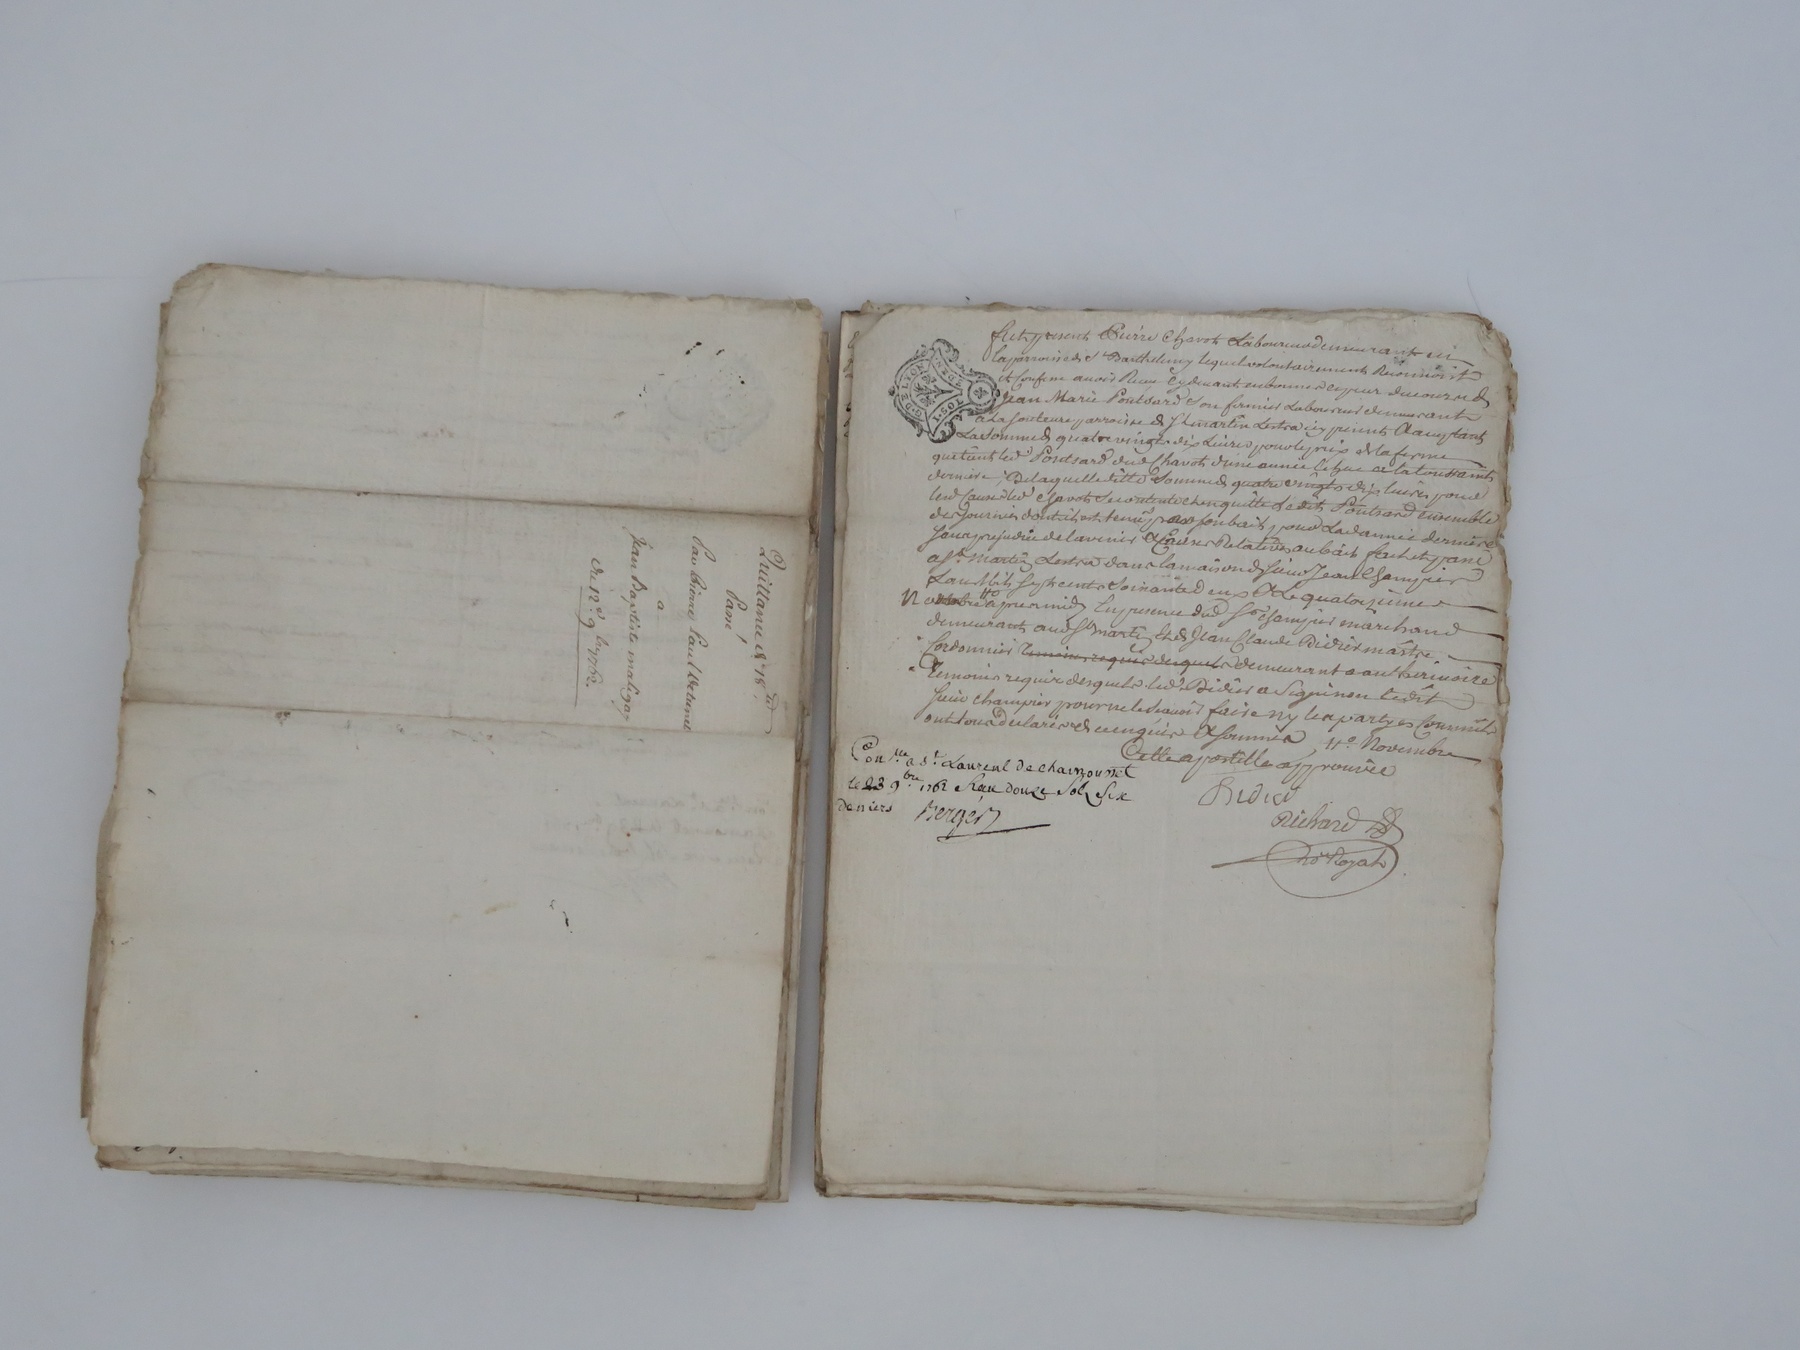 Quittance de 78. ₶
Passé
Par Etienne Paul
a
Jean Baptiste
du 12e 9bre 1762.
G. DE LYON
1. SOL
fut present Pierre Chavot Laboureur demeurant en
la parroisse de St Barthelemy lequel volontairement Reconnoist
et Confesse avoir Receu cy devant en bonnes espece du cours de
Jean Marie Pontsard Son fermier Laboureur demeurant
a parroisse de St martin Lestra icy present et acceptant
La Somme de quatre vingts dix Livres pour le prix de la ferme
que tient led Pontsard dud Chavot d'une année Echue a la toussaints
derniere, De laquelle ditte Somme de quatre vingts dix Livres pour
led Chavot Se contente et en quitte Le dit Pontsard ensemble
des journées dont il est tenu par son bail pour Lad année derniere
Sans prejudice de l'avenir et Clauses Relatives au bail fait et passé
a St. Martin Lestra dans la maison de Sieur Jean Champier
L'an Mil Sept cents Soixante deux et Le quatorzieme
apres midy En presence dud Sr Champier marchand
demeurant aud St martin et de Jean Claude Didier maitre
Cordonnier temoins requis desquels demeurant a
Temoins requis desquels led. Didier a Signé non Ledit
Sieur Champier pour ne le Scavoir faire ny les partyes Comme ils
ont tous declaré de ce enquis et Sommés, Novembre
Cette apostille approuvée
Didier
Richard
No.re Royal
Con.lle a St. Laurent de chamousset
le 23 9bre 1762 Reçu douze Sols Six
deniers Berger